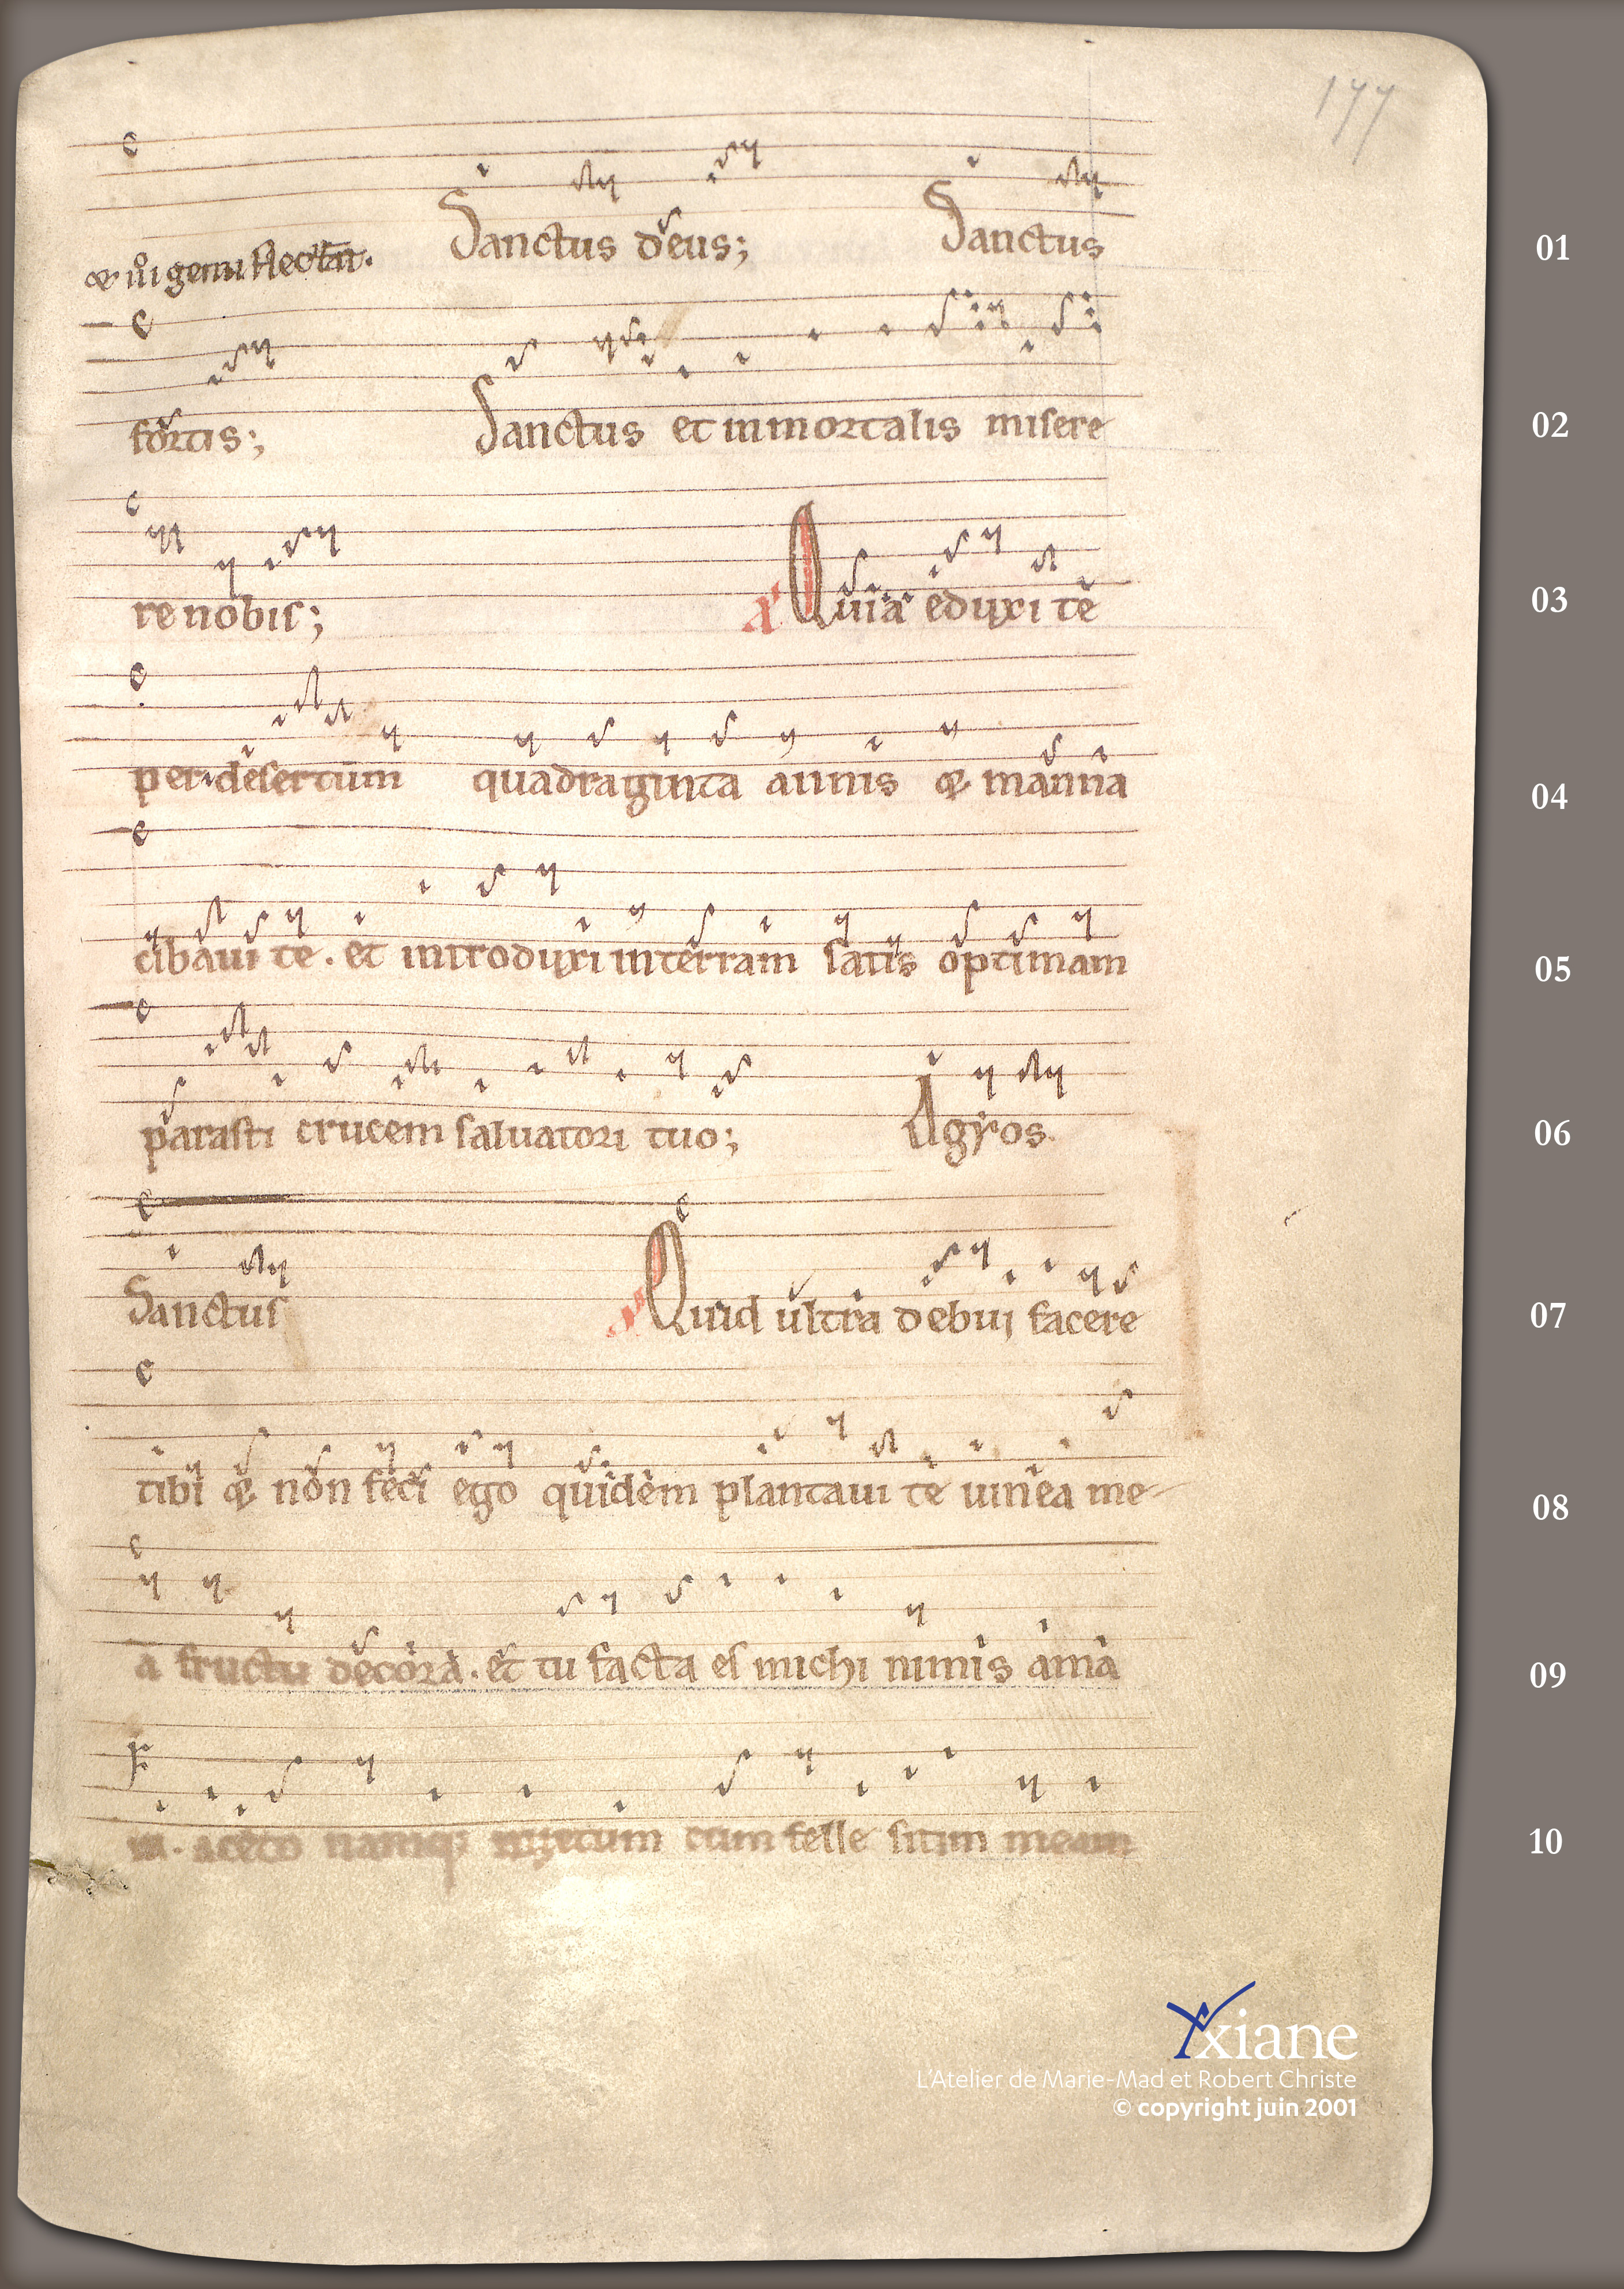 177
& iii genu flectan̄.
Sanctus deus; Sanctus
01
fortis; Sanctus et inmortalis misere
02
re nobis; Quia eduxi te
03
per desertum quadraginta annis & manna
04
cibaui te. et introduxi in terram satis optimam
05
parasti crucem saluatori tuo; Agyos.
06
Sanctus Quid ultra debui facere
07
tibi & non feci ego quidem plantaui te uinea me
08
a fructu decora. et tu facta es michi nimis ama
09
aceto namq; cum felle sitim meam
10
Yxiane
L'Atelier de Marie-Mad et Robert Christe
© copyright juin 2001